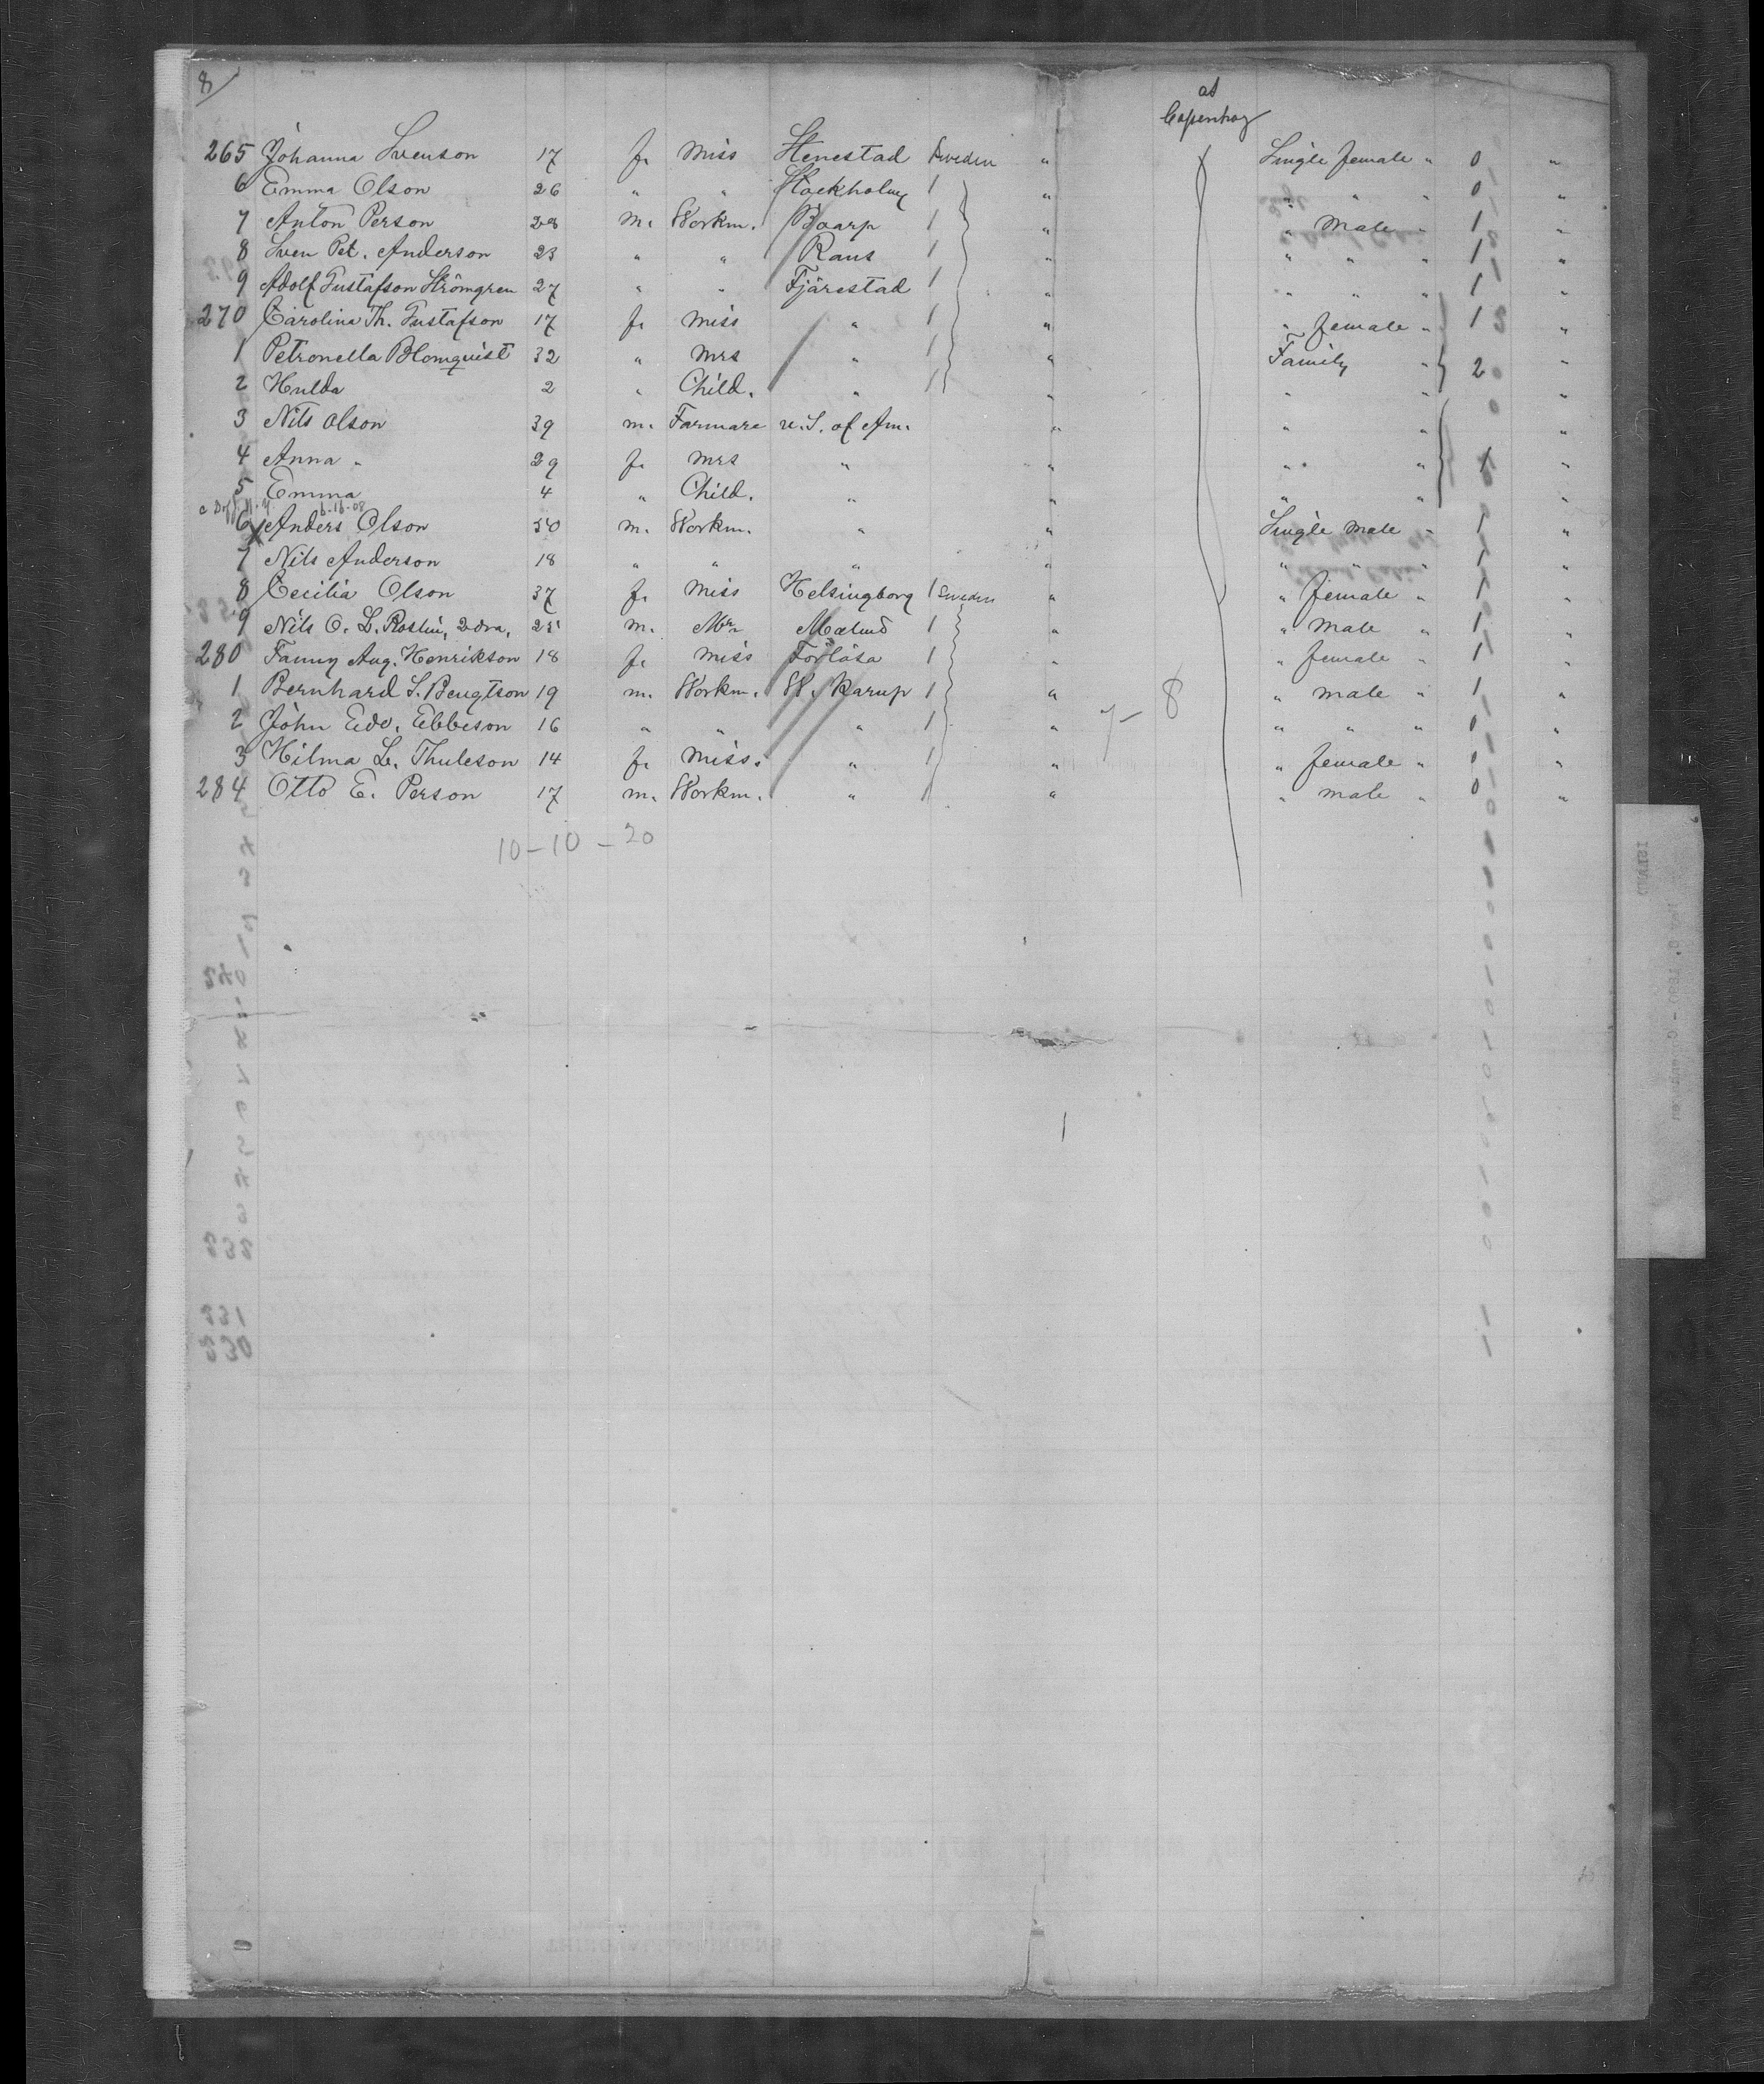 8/
at
Copenhag
265 Johanna Svenson 17 f. Miss Stenestad Sweden " Single female " 0 "
6 Emma Olson 26 " " Stockholm 1 " " " " 0 "
7 Anton Person 28 m. Workm. Boarp 1 " " male " 1 "
8 Sven Pet. Anderson 23 " " Raus 1 " " " " 1 "
9 Adolf Gustafson Strömgren 27 " " Fjärestad 1 " " " " 1 "
270 Carolina Th. Gustafson 17 f. Miss " 1 " " female " 1 "
1 Petronella Blomquist 32 " Mrs " 1 " Family " 2 "
2 Hulda 2 " Child. " 1 " " " "
3 Nils Olson 39 m. Farmare U.S. of Am. " " " "
4 Anna " 29 f. Mrs " " " " 1 "
5 Emma 4 " Child. " " " " "
6-16-08
6 X Anders Olson 50 m. Workm. " " Single male " 1 "
7 Nils Anderson 18 " " " " " " " 1 "
8 Cecilia Olson 37 f. Miss Helsingborg 1 Sweden " " female " 1 "
9 Nils O. L. Roslin, 2dra, 25 m. Mr Malmö 1 " " male " 1 "
280 Fanny Aug. Henrikson 18 f. Miss Förlösa 1 " " female " 1 "
1 Bernhard S. Bengtson 19 m. Workm. W. Karup 1 " " male " 1 "
7 – 8
2 John Edv. Ebbeson 16 " " " 1 " " " " 0 "
3 Hilma L. Thuleson 14 f. Miss. " 1 " " female " 0 "
284 Otto E. Person 17 m. Workm. " 1 " " male " 0 "
10 – 10 – 20